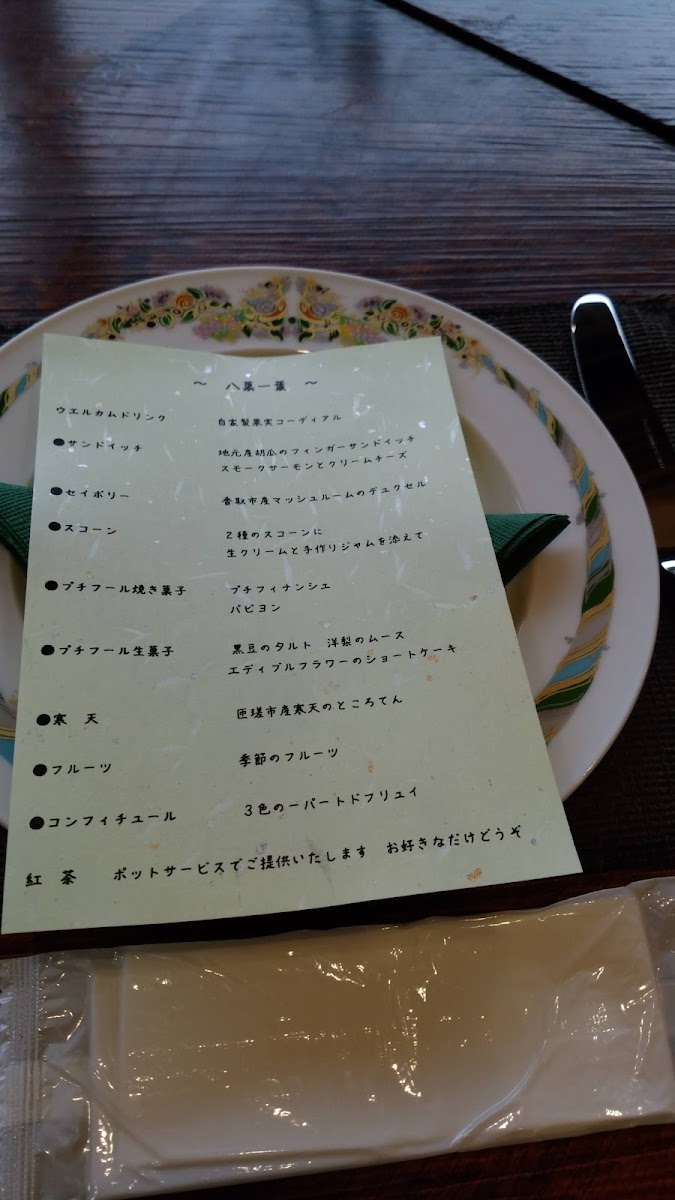 ～ 八菓一葉 ～
ウエルカムドリンク 自家製果実コーディアル
●サンドイッチ 地元産胡瓜のフィンガーサンドイッチ
スモークサーモンとクリームチーズ
●セイボリー 香取市産マッシュルームのデュクセル
●スコーン 2種のスコーンに
生クリームと手作りジャムを添えて
●プチフール焼き菓子 プチフィナンシェ
パピヨン
●プチフール生菓子 黒豆のタルト 洋梨のムース
エディブルフラワーのショートケーキ
●寒 天 匝瑳市産寒天のところてん
●フルーツ 季節のフルーツ
●コンフィチュール 3色のーパートドフリュイ
紅 茶 ポットサービスでご提供いたします お好きなだけどうぞ